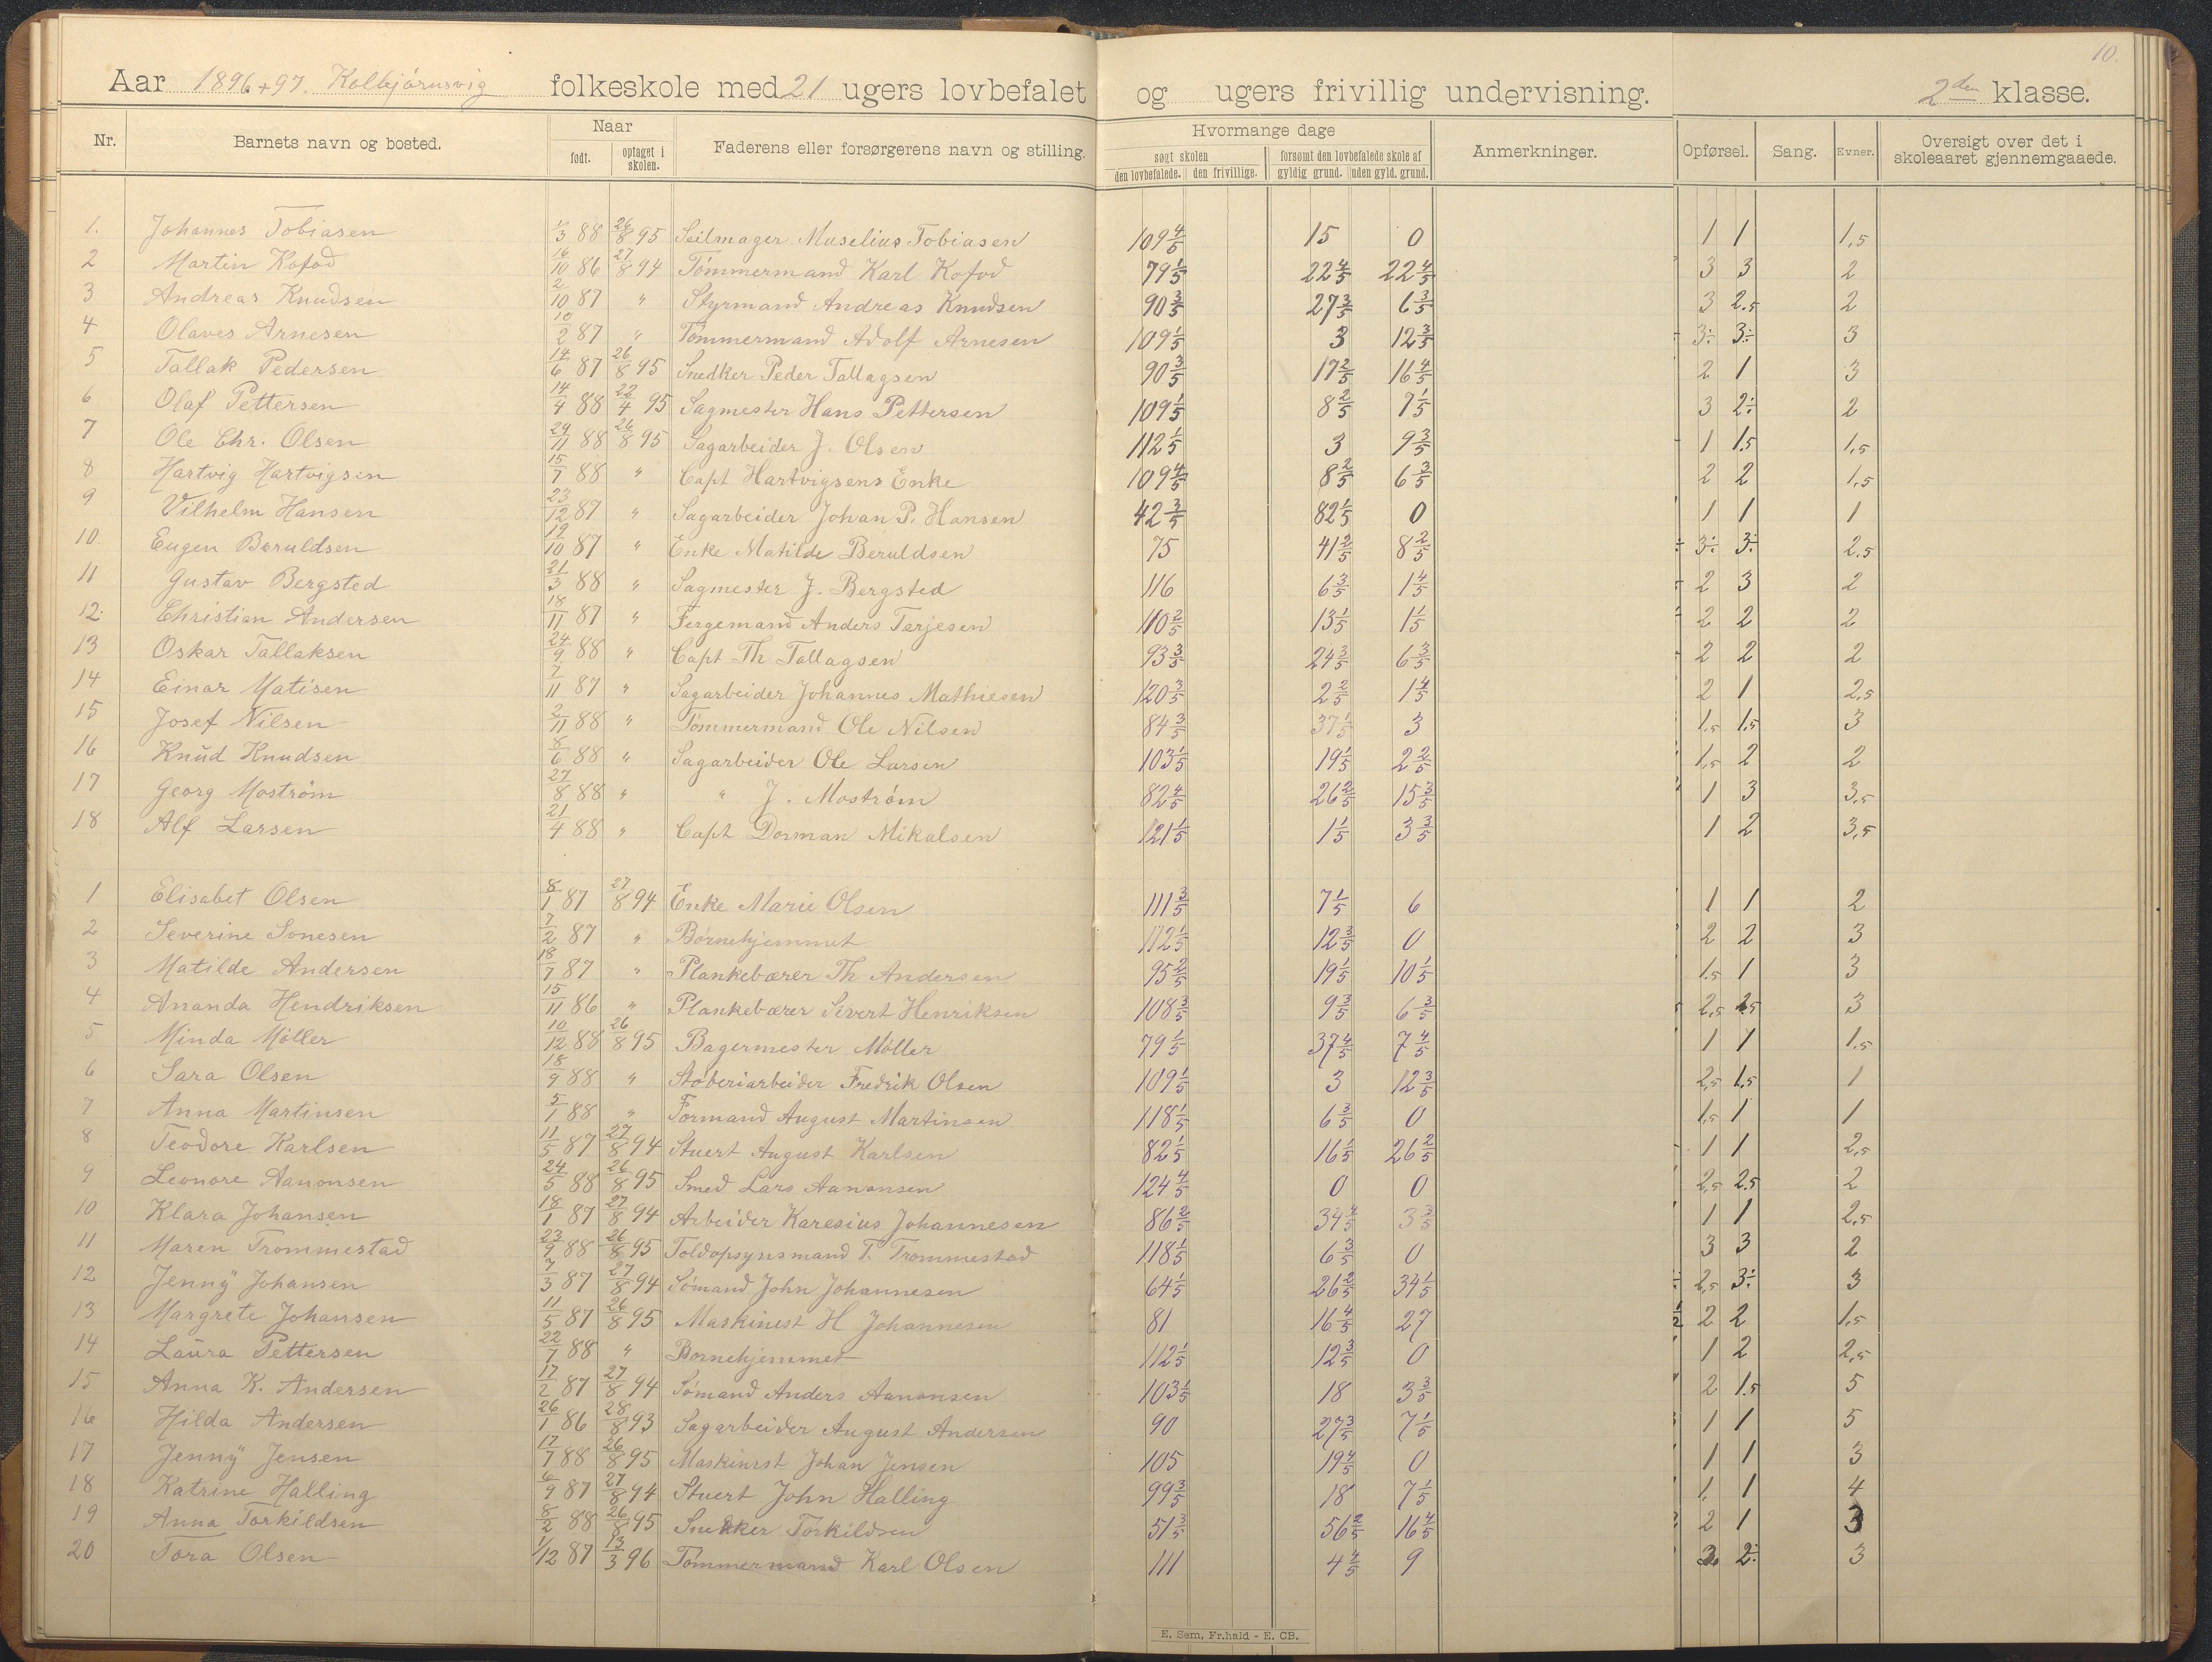 10.
Aar 1896+97. Kolbjørnsvig folkeskole med 21 ugers lovbefalet og ugers frivillig undervisning. 2den klasse.
Nr. Barnets navn og bosted. Naar født. optaget i skolen. Faderens eller forsørgerens navn og stilling. Hvormange dage søgt skolen den lovbefalede. den frivillige. forsømt den lovbefalede skole af gyldig grund. uden gyld. grund. Anmerkninger. Opførsel. Sang. Evner. Oversigt over det i skoleaaret gjennemgaaede.
1. Johannes Tobiasen 1/3 88 26/8 95 Seilmager Muselius Tobiasen 109 4/5 15 0 1 1 1,5
2 Martin Kofod 16/10 86 27/8 94 Tømmermand Karl Kofod 79 1/5 22 4/5 22 4/5 3 3 2
3 Andreas Knudsen 2/10 87 " Styrmand Andreas Knudsen 90 3/5 27 3/5 6 3/5 3 2,5 2
4 Olaves Arnesen 10/2 87 " Tømmermand Adolf Arnesen 109 1/5 3 12 3/5 3÷ 3÷ 3
5 Tallak Pedersen 14/6 87 26/8 95 Snedker Peder Tallagsen 90 3/5 17 2/5 16 4/5 2 1 3
6 Olaf Pettersen 14/4 88 22/4 95 Sagmester Hans Pettersen 109 1/5 8 2/5 7 1/5 3 2÷ 2
7 Ole Chr. Olsen 29/11 88 26/8 95 Sagarbeider J. Olsen 112 1/5 3 9 3/5 1 1,5 1,5
8 Hartvig Hartvigsen 15/7 88 " Capt Hartvigsens Enke 109 4/5 8 2/5 6 3/5 2 2 1,5
9 Vilhelm Hansen 23/12 87 " Sagarbeider Johan P. Hansen 42 3/5 82 1/5 0 1 1 1
10. Eugen Beruldsen 19/10 87 " Enke Matilde Beruldsen 75 41 2/5 8 2/5 3÷ 3÷ 2,5
11 Gustav Bergsted 21/3 88 " Sagmester J. Bergsted 116 6 3/5 1 4/5 2 3 2
12. Christian Andersen 18/11 87 " Fergemand Anders Terjesen 110 2/5 13 1/5 1 1/5 2 2 2
13 Oskar Tallaksen 24/9 88 " Capt Th Tallagsen 93 3/5 24 3/5 6 3/5 2 2 2
14 Einar Matisen 7/11 87 " Sagarbeider Johannes Mathiesen 120 3/5 2 2/5 1 4/5 2 1 2,5
15 Josef Nilsen 2/11 88 " Tømmermand Ole Nilsen 84 3/5 37 1/5 3 1,5 1,5 3
16 Knud Knudsen 8/6 88 " Sagarbeider Ole Larsen 103 1/5 19 1/5 2 2/5 1,5 2 2
17 Georg Mostrøm 27/8 88 " " J. Mostrøm 82 4/5 26 2/5 15 3/5 1 3 3,5
18 Alf Larsen 21/4 88 " Capt Dorman Mikalsen 121 1/5 1 1/5 3 3/5 1 2 3,5
1 Elisabet Olsen 8/1 87 27/8 94 Enke Marie Olsen 111 3/5 7 1/5 6 1 1 2
2 Severine Sonesen 7/2 87 " Børnehjemmet 112 1/5 12 3/5 0 2 2 3
3 Matilde Andersen 18/7 87 " Plankebærer Th Andersen 95 2/5 19 1/5 10 1/5 1,5 1 3
4 Ananda Hendriksen 15/11 86 " Plankebærer Sivert Henriksen 108 3/5 9 3/5 6 3/5 2,5 2,5 3
5 Minda Møller 10/12 88 26/8 95 Bagermester Møller 79 1/5 37 4/5 7 4/5 1 1 1,5
6 Sara Olsen 18/9 88 " Støberiarbeider Fredrik Olsen 109 1/5 3 12 3/5 2,5 1,5 1
7 Anna Martinsen 5/1 88 " Formand August Martinsen 118 1/5 6 3/5 0 1,5 1 1
8 Teodore Karlsen 11/5 87 27/8 94 Stuert August Karlsen 82 1/5 16 1/5 26 2/5 1 1 2,5
9 Leonore Aanonsen 24/5 88 26/8 95 Smed Lars Aanonsen 124 4/5 0 0 2,5 2,5 2
10 Klara Johansen 18/1 87 27/8 94 Arbeider Karesius Johannesen 86 2/5 34 4/5 3 3/5 1 1 2,5
11 Maren Trommestad 23/9 88 26/8 95 Toldopsynsmand T. Trommestad 118 1/5 6 3/5 0 3 3 2
12 Jenny Johansen 7/3 87 27/8 94 Sømand John Johannesen 64 1/5 26 2/5 34 1/5 2,5 3÷ 3
13 Margrete Johansen 11/5 87 26/8 95 Maskinist H Johannesen 81 16 4/5 27 2 2 1,5
14 Laura Pettersen 22/7 88 " Børnehjemmet 112 1/5 12 3/5 0 1 2 2,5
15 Anna K. Andersen 17/2 87 27/8 94 Sømand Anders Aanonsen 103 1/5 18 3 3/5 2 1,5 5
16 Hilda Andersen 26/1 86 28/8 93 Sagarbeider August Andersen 90 27 3/5 7 1/5 1 1 5
17 Jenny Jensen 17/7 88 26/8 95 Maskinist Johan Jensen 105 19 4/5 0 1 1 3
18 Katrine Halling 6/9 87 27/8 94 Stuert John Halling 99 3/5 18 7 1/5 1 1 4
19 Anna Torkildsen 8/2 88 26/8 95 Snekker Torkildsen 51 3/5 56 2/5 16 4/5 2 1 3
20 Tora Olsen 1/12 87 13/3 96 Tømmermand Karl Olsen 111 4 4/5 9 3 2÷ 3
E. Sem, Fr.hald - E. CB.